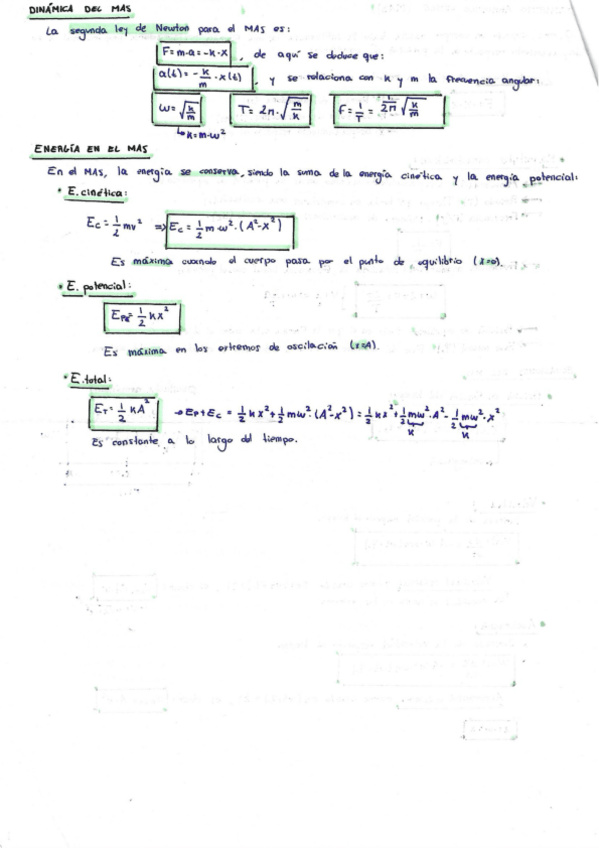 DINÁMICA DEL MAS
La segunda ley de Newton para el MAS es:
F = m·a = -k·x , de aquí se deduce que:
a(t) = - k/m · x(t) , y se relaciona con k y m la frecuencia angular:
ω = √(k/m) T = 2π·√(m/k) F = 1/T = 1/2π √(k/m)
↳ k = m·ω²
ENERGÍA EN EL MAS
En el MAS, la energía se conserva, siendo la suma de la energía cinética y la energía potencial:
• E. cinética:
Ec = 1/2 mv² ⇒ Ec = 1/2 m·ω²·(A²-x²)
Es máxima cuando el cuerpo pasa por el punto de equilibrio (x=0).
• E. potencial:
Epe = 1/2 kx²
Es máxima en los extremos de oscilación (x=A).
• E. total:
ET = 1/2 kA² → Ep+Ec = 1/2 kx² + 1/2 mω²·(A²-x²) = 1/2 kx² + 1/2 mω²·A² - 1/2 mω²·x²
k k
Es constante a lo largo del tiempo.